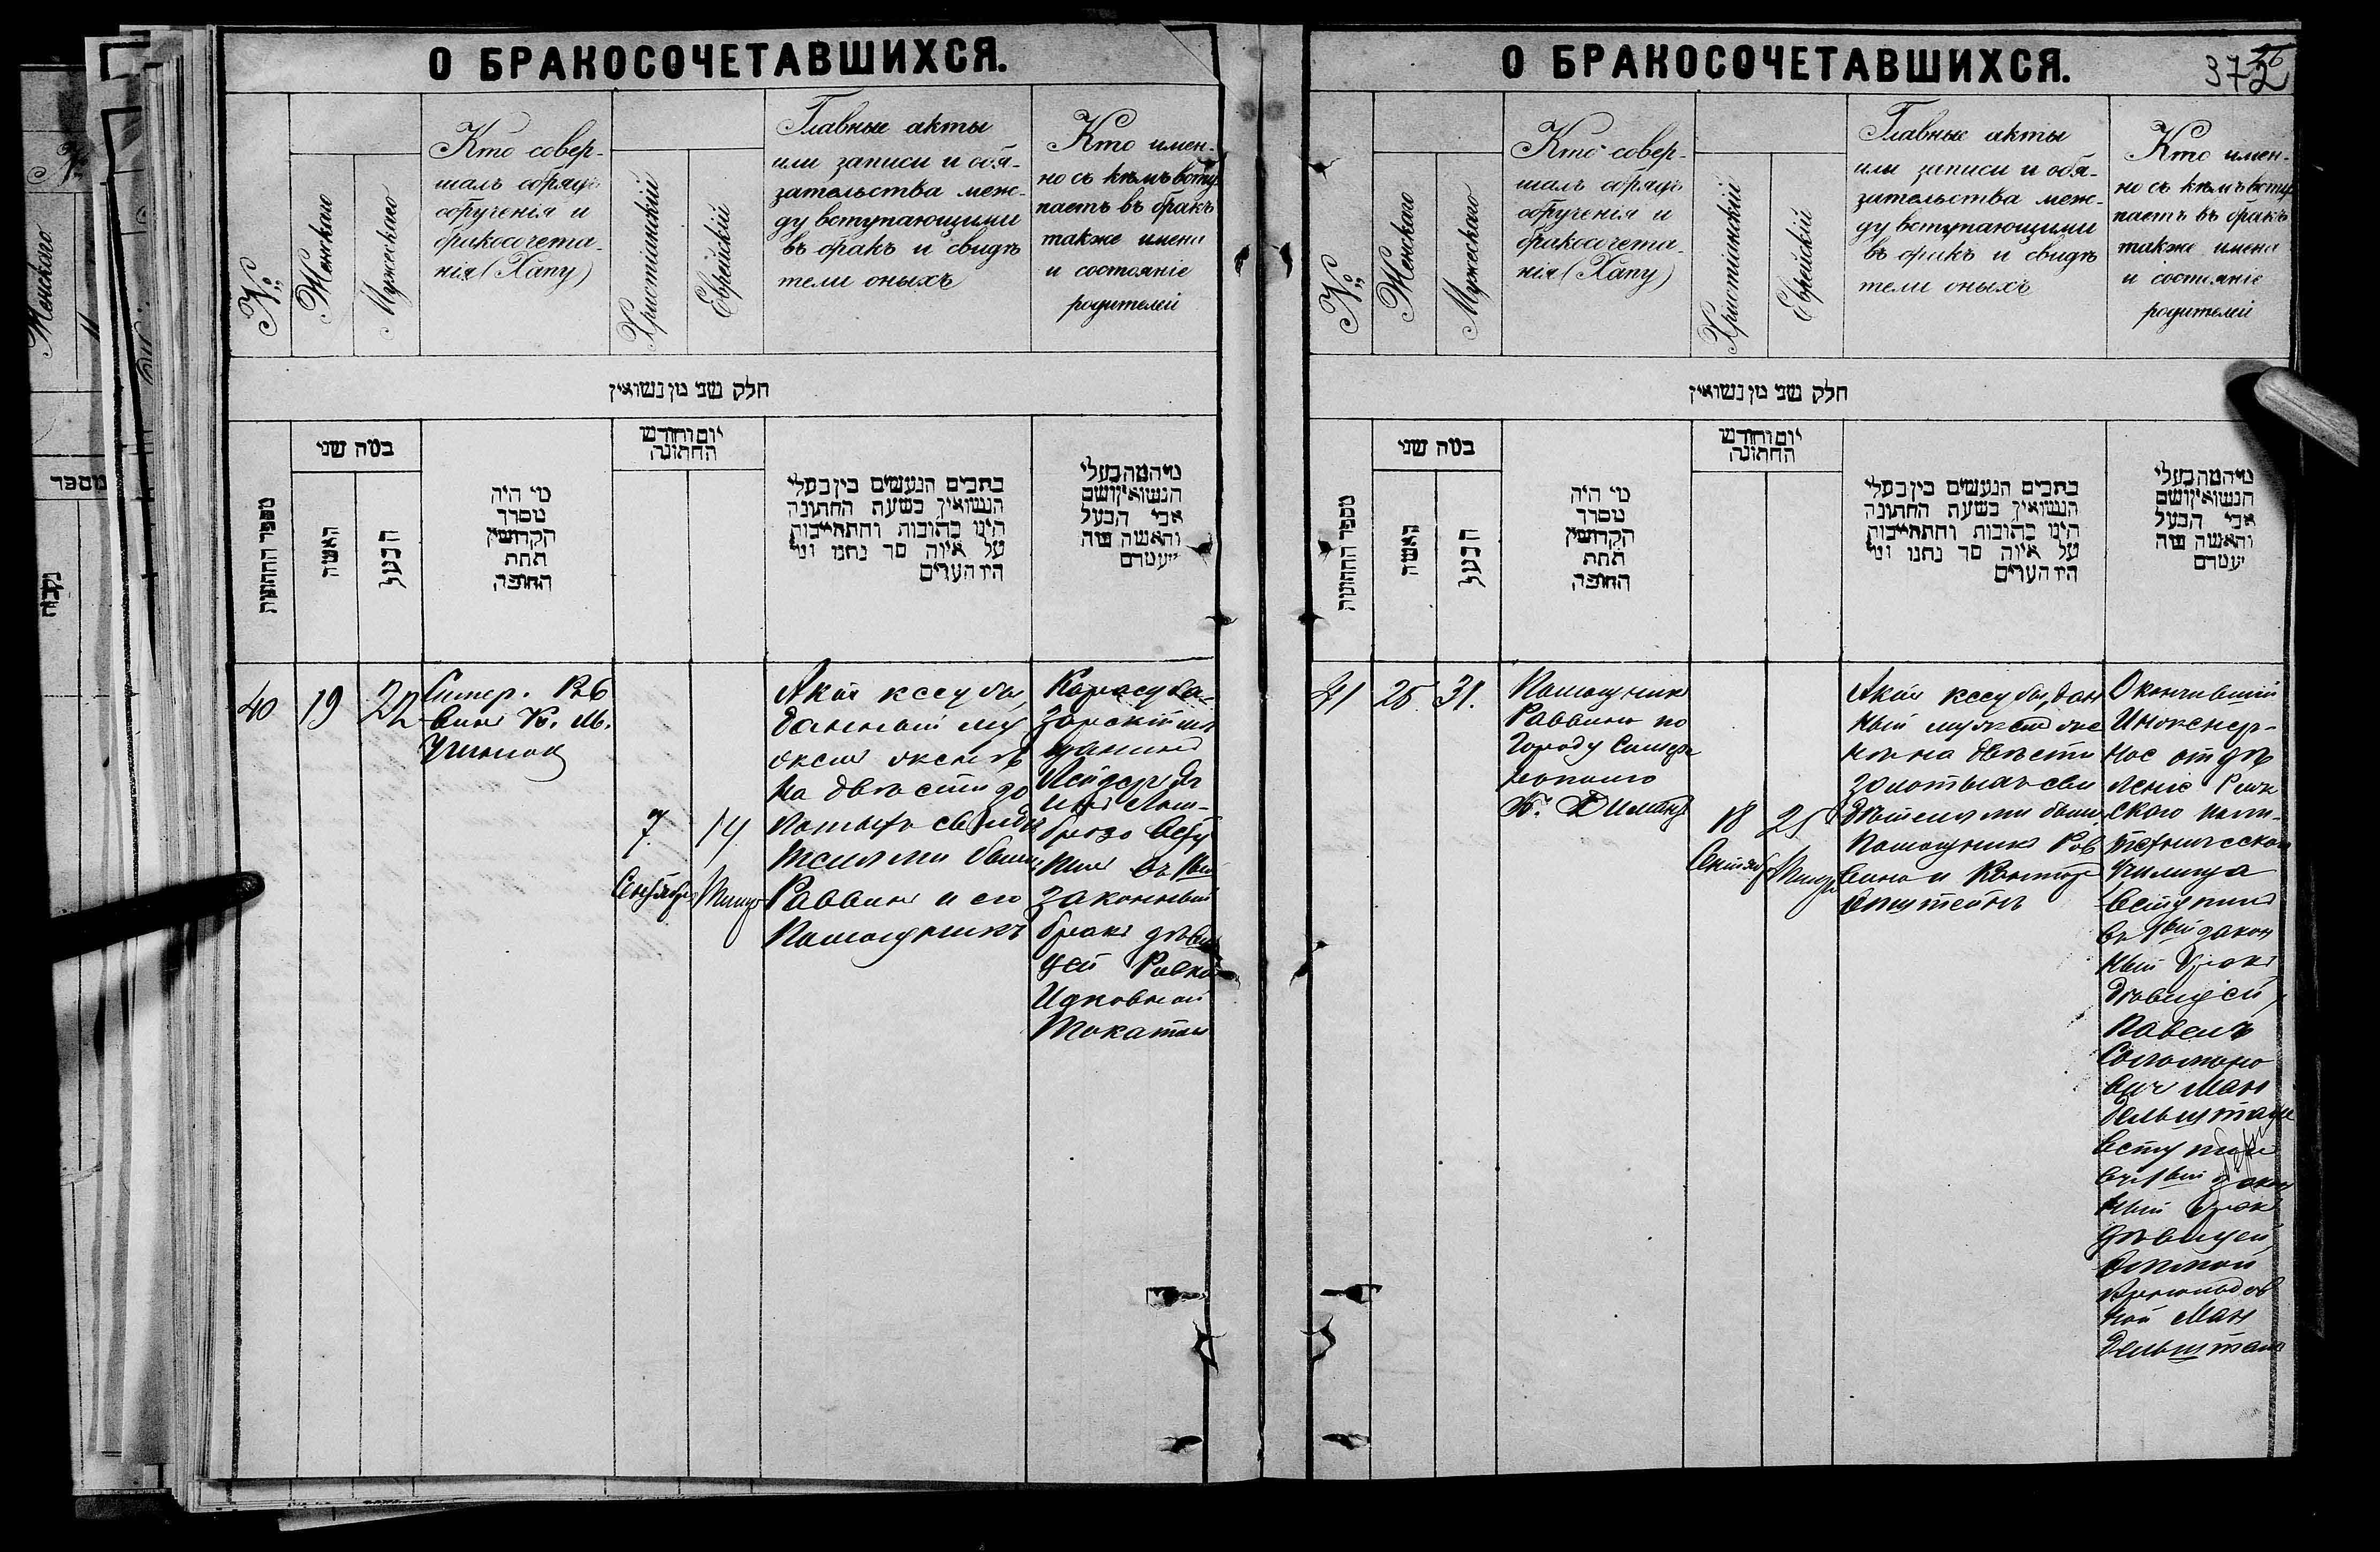 О БРАКОСОЧЕТАВШИХСЯ.
№
Женскаго
Мужескаго
Кто совер-
шалъ обрядъ
обрученія и
бракосочета-
нія (Хапу)
Христіанскій
Еврейскій
Главные акты
или записи и обя-
зательства меж-
ду вступающими
въ бракъ и свидѣ
тели оныхъ
Кто имен-
но съ кѣмъ всту
паетъ въ бракъ
также имена
и состояніе
родителей
חלק שני מן נשואין
מספר החתונות
כמה שני
האשה
הבעל
מי היה
מסדר
הקדושין
תחת
החופה
יום וחודש
החתונה
כתבים הנעשים בין בעלי
הנשואין בשעת החתונה
היינו כתובות והתחייבות
על איזה סך נתנו ומי
היו העדים
מי המה בעלי
הנשואין ושם
אבי הבעל
והאשה ומה
מעמדם
40
19
22
Симфер. Рав
винъ
7
Сентября
14
Тишри
Акт ксеубы,
данный му
жемъ женѣ
на двѣсти зо
лотыхъ свидѣ
телями были
Раввинъ и его
Помощникъ
Карасуба-
зарскій мѣ
щанинъ
бразо Всту
пил въ 1ый
законный
бракъ дѣви
цей
Токатлы
О БРАКОСОЧЕТАВШИХСЯ.
372
№
Женскаго
Мужескаго
Кто совер-
шалъ обрядъ
обрученія и
бракосочета-
нія (Хапу)
Христіанскій
Еврейскій
Главные акты
или записи и обя-
зательства меж-
ду вступающими
въ бракъ и свидѣ
тели оныхъ
Кто имен-
но съ кѣмъ всту
паетъ въ бракъ
также имена
и состояніе
родителей
חלק שני מן נשואין
מספר החתונות
כמה שני
האשה
הבעל
מי היה
מסדר
הקדושין
תחת
החופה
יום וחודש
החתונה
כתבים הנעשים בין בעלי
הנשואין בשעת החתונה
היינו כתובות והתחייבות
על איזה סך נתנו ומי
היו העדים
מי המה בעלי
הנשואין ושם
אבי הבעל
והאשה ומה
מעמדם
41
25
31.
Помощник
Раввина по
Городу Симфе
рополю
18
Сентября
25
Тишри
Акт ксеубы, дан
ный мужем же
нѣ на двѣсти
золотыхъ сви
дѣтелями были
Помощникъ Рав
вина и Кантор
Окончившій
Инженер-
ное отдѣ
леніе Риж
скаго поли-
техническаго
Училища
Вступилъ
въ 1ый закон
ный бракъ
дѣвицей,
Павелъ
Соломоно
вич Ман
дельштамъ
вступилъ
въ 1ый закон
ный брак
дѣвицей
ной Ман
дельштамъ